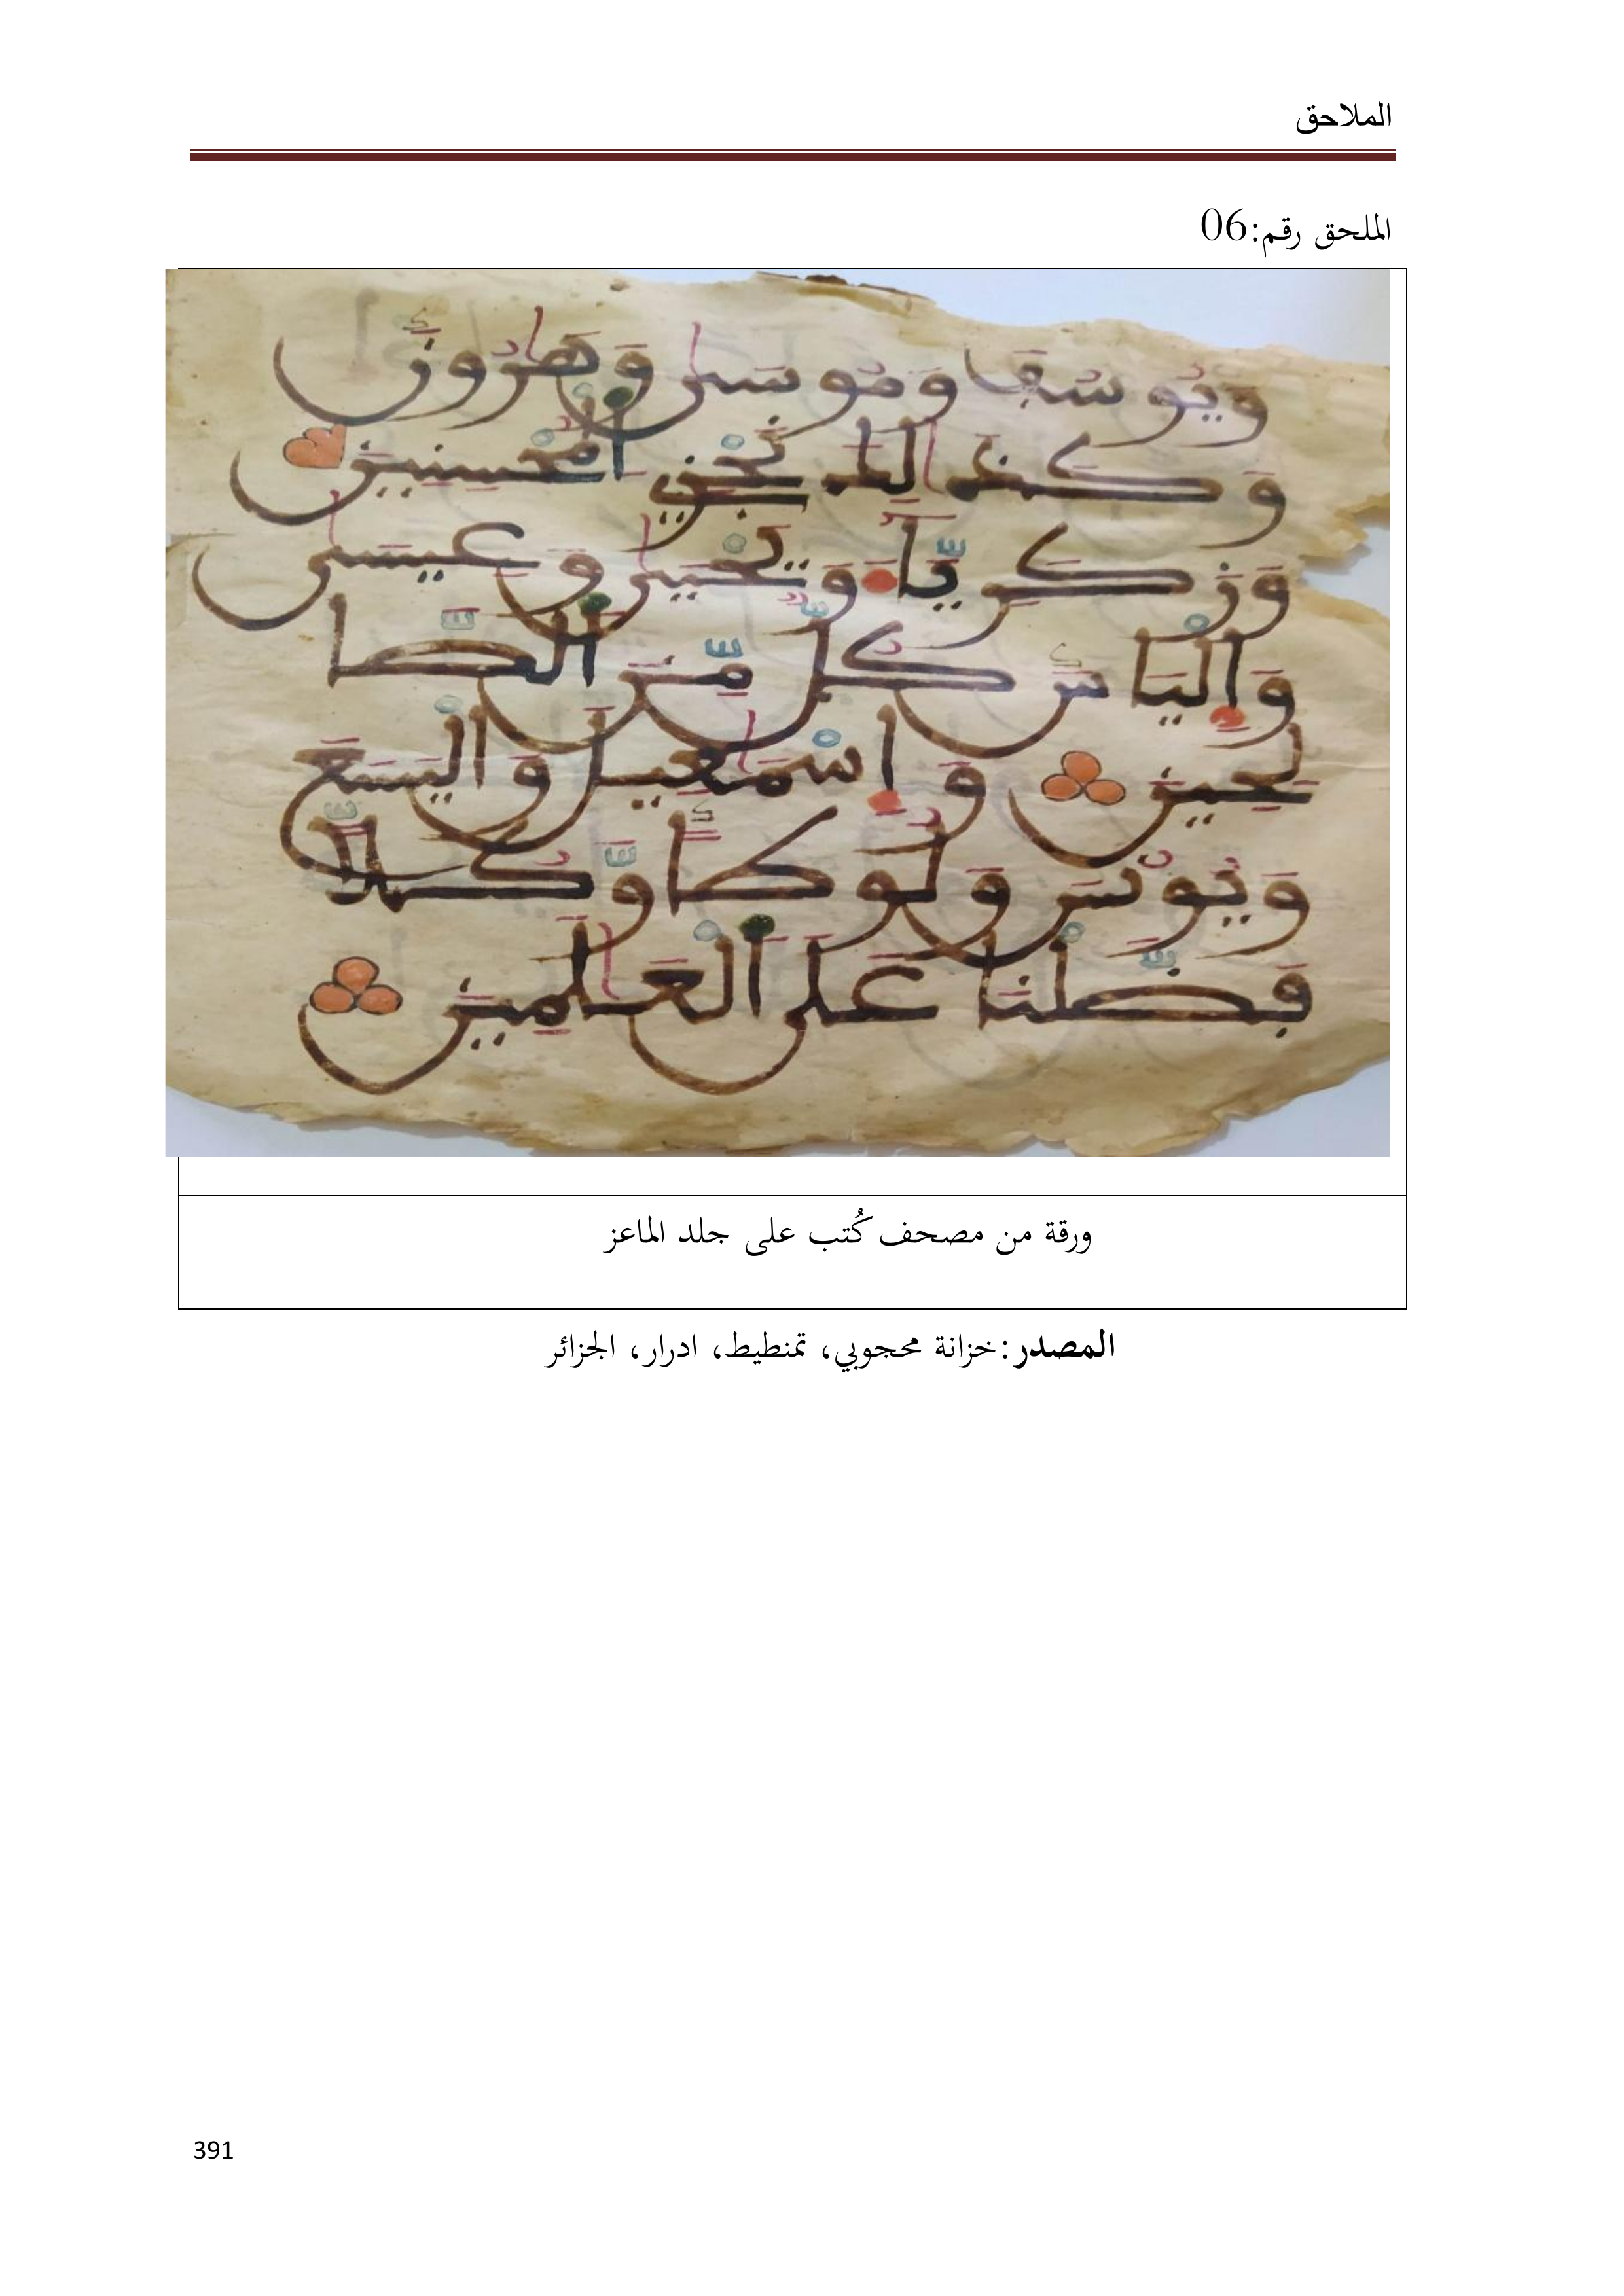 الملاحق
الملحق رقم:06
وَيُوسُفَ وَمُوسَىٰ وَهَٰرُونَ
وَكَذَٰلِكَ نَجْزِي اَ۬لْمُحْسِنِينَ
وَزَكَرِيَّآءَ وَيَحْيَىٰ وَعِيسَىٰ
وَإِلْيَاسَ كُلٌّ مِّنَ اَ۬لصَّا
لِحِينَ وَإِسْمَٰعِيلَ وَالْيَسَعَ
وَيُونُسَ وَلُوطاً وَّكُلّاً
فَضَّلْنَا عَلَى اَ۬لْعَٰلَمِينَ
ورقة من مصحف كُتب على جلد الماعز
المصدر:خزانة محجوبي، تمنطيط، ادرار، الجزائر
391